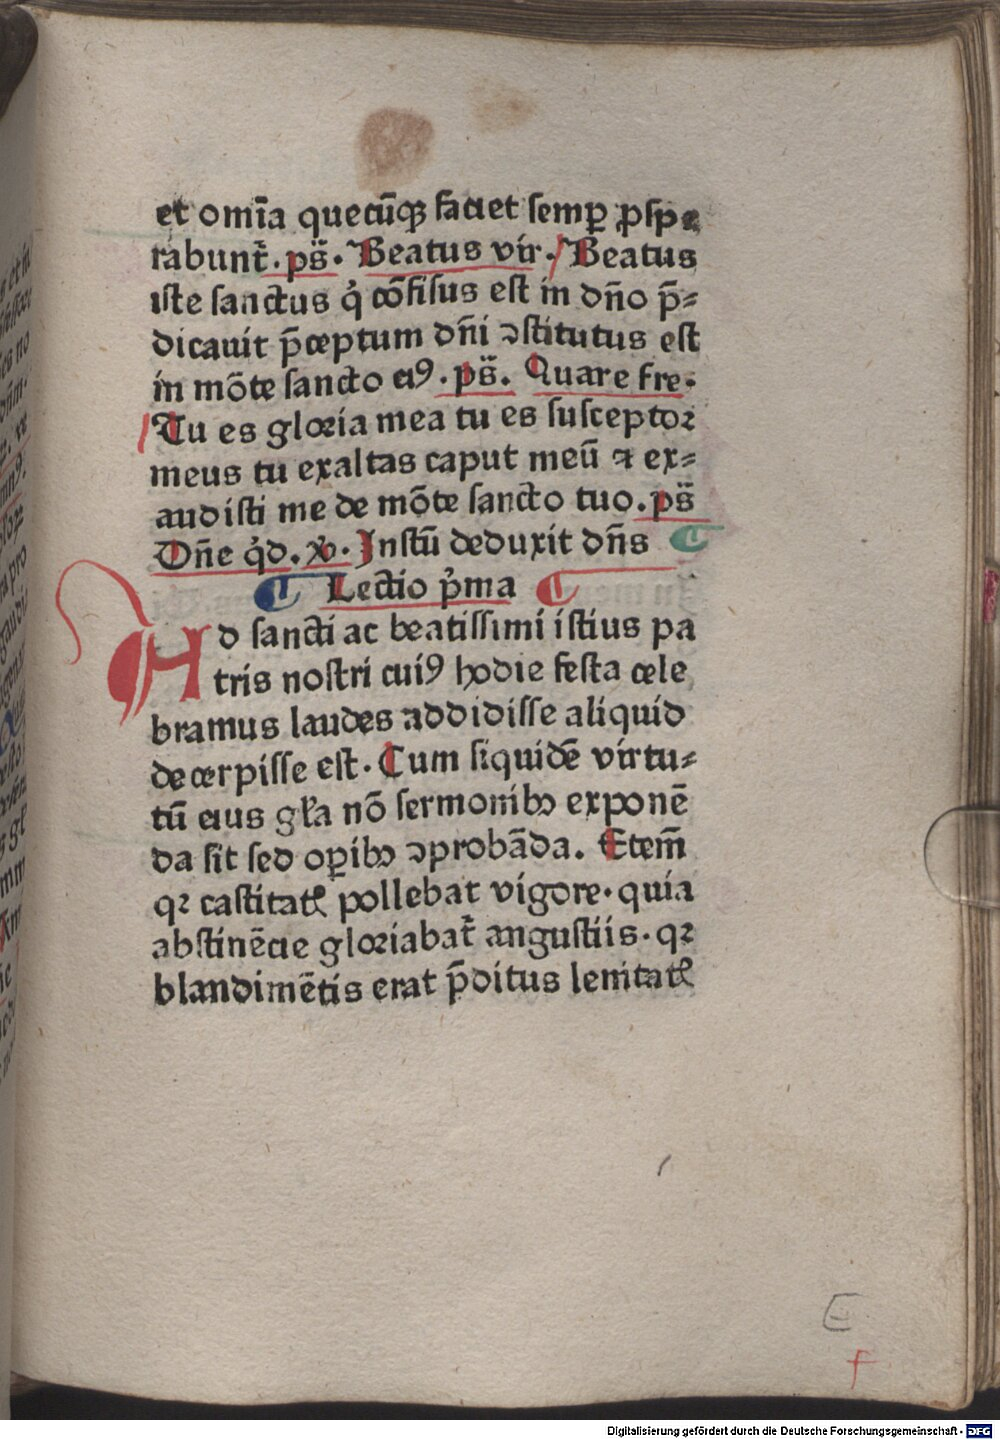 et om̄ia quecūqꝫ faciet semꝑ ꝓspe
rabunt᷑. ps̄. Beatus vir. Beatus
iste sanctus q̇ cōfisus est in dn̄o p̄⸗
dicauit p̄ceptum dn̄i ꝯstitutus est
in mōte sancto eiꝰ. ps̄. Quare fre.
Tu es gloꝛia mea tu es susceptoꝛ
meus tu exaltas caput meū ⁊ ex⸗
audisti me de mōte sancto tuo. ps̄
Dn̄e q̇d. Instū deduxit dn̄s
Lectio p̓ma
AD sancti ac beatissimi istius pa
tris nostri cuiꝰ hodie festa cele
bramus laudes addidisse aliquid
decerpisse est. Cum siquidē virtu⸗
tū eius gl̄a nō sermonibꝫ exponē
da sit sed oꝑibꝫ ꝯprobāda. Etem̄
qꝛ castitatꝭ pollebat vigore. quia
abstinēcie gloꝛiabat᷑ angustiis. qꝛ
blandimētis erat p̄ditus lenitatꝭ
E
f
Digitalisierung gefördert durch die Deutsche Forschungsgemeinschaft - DFG